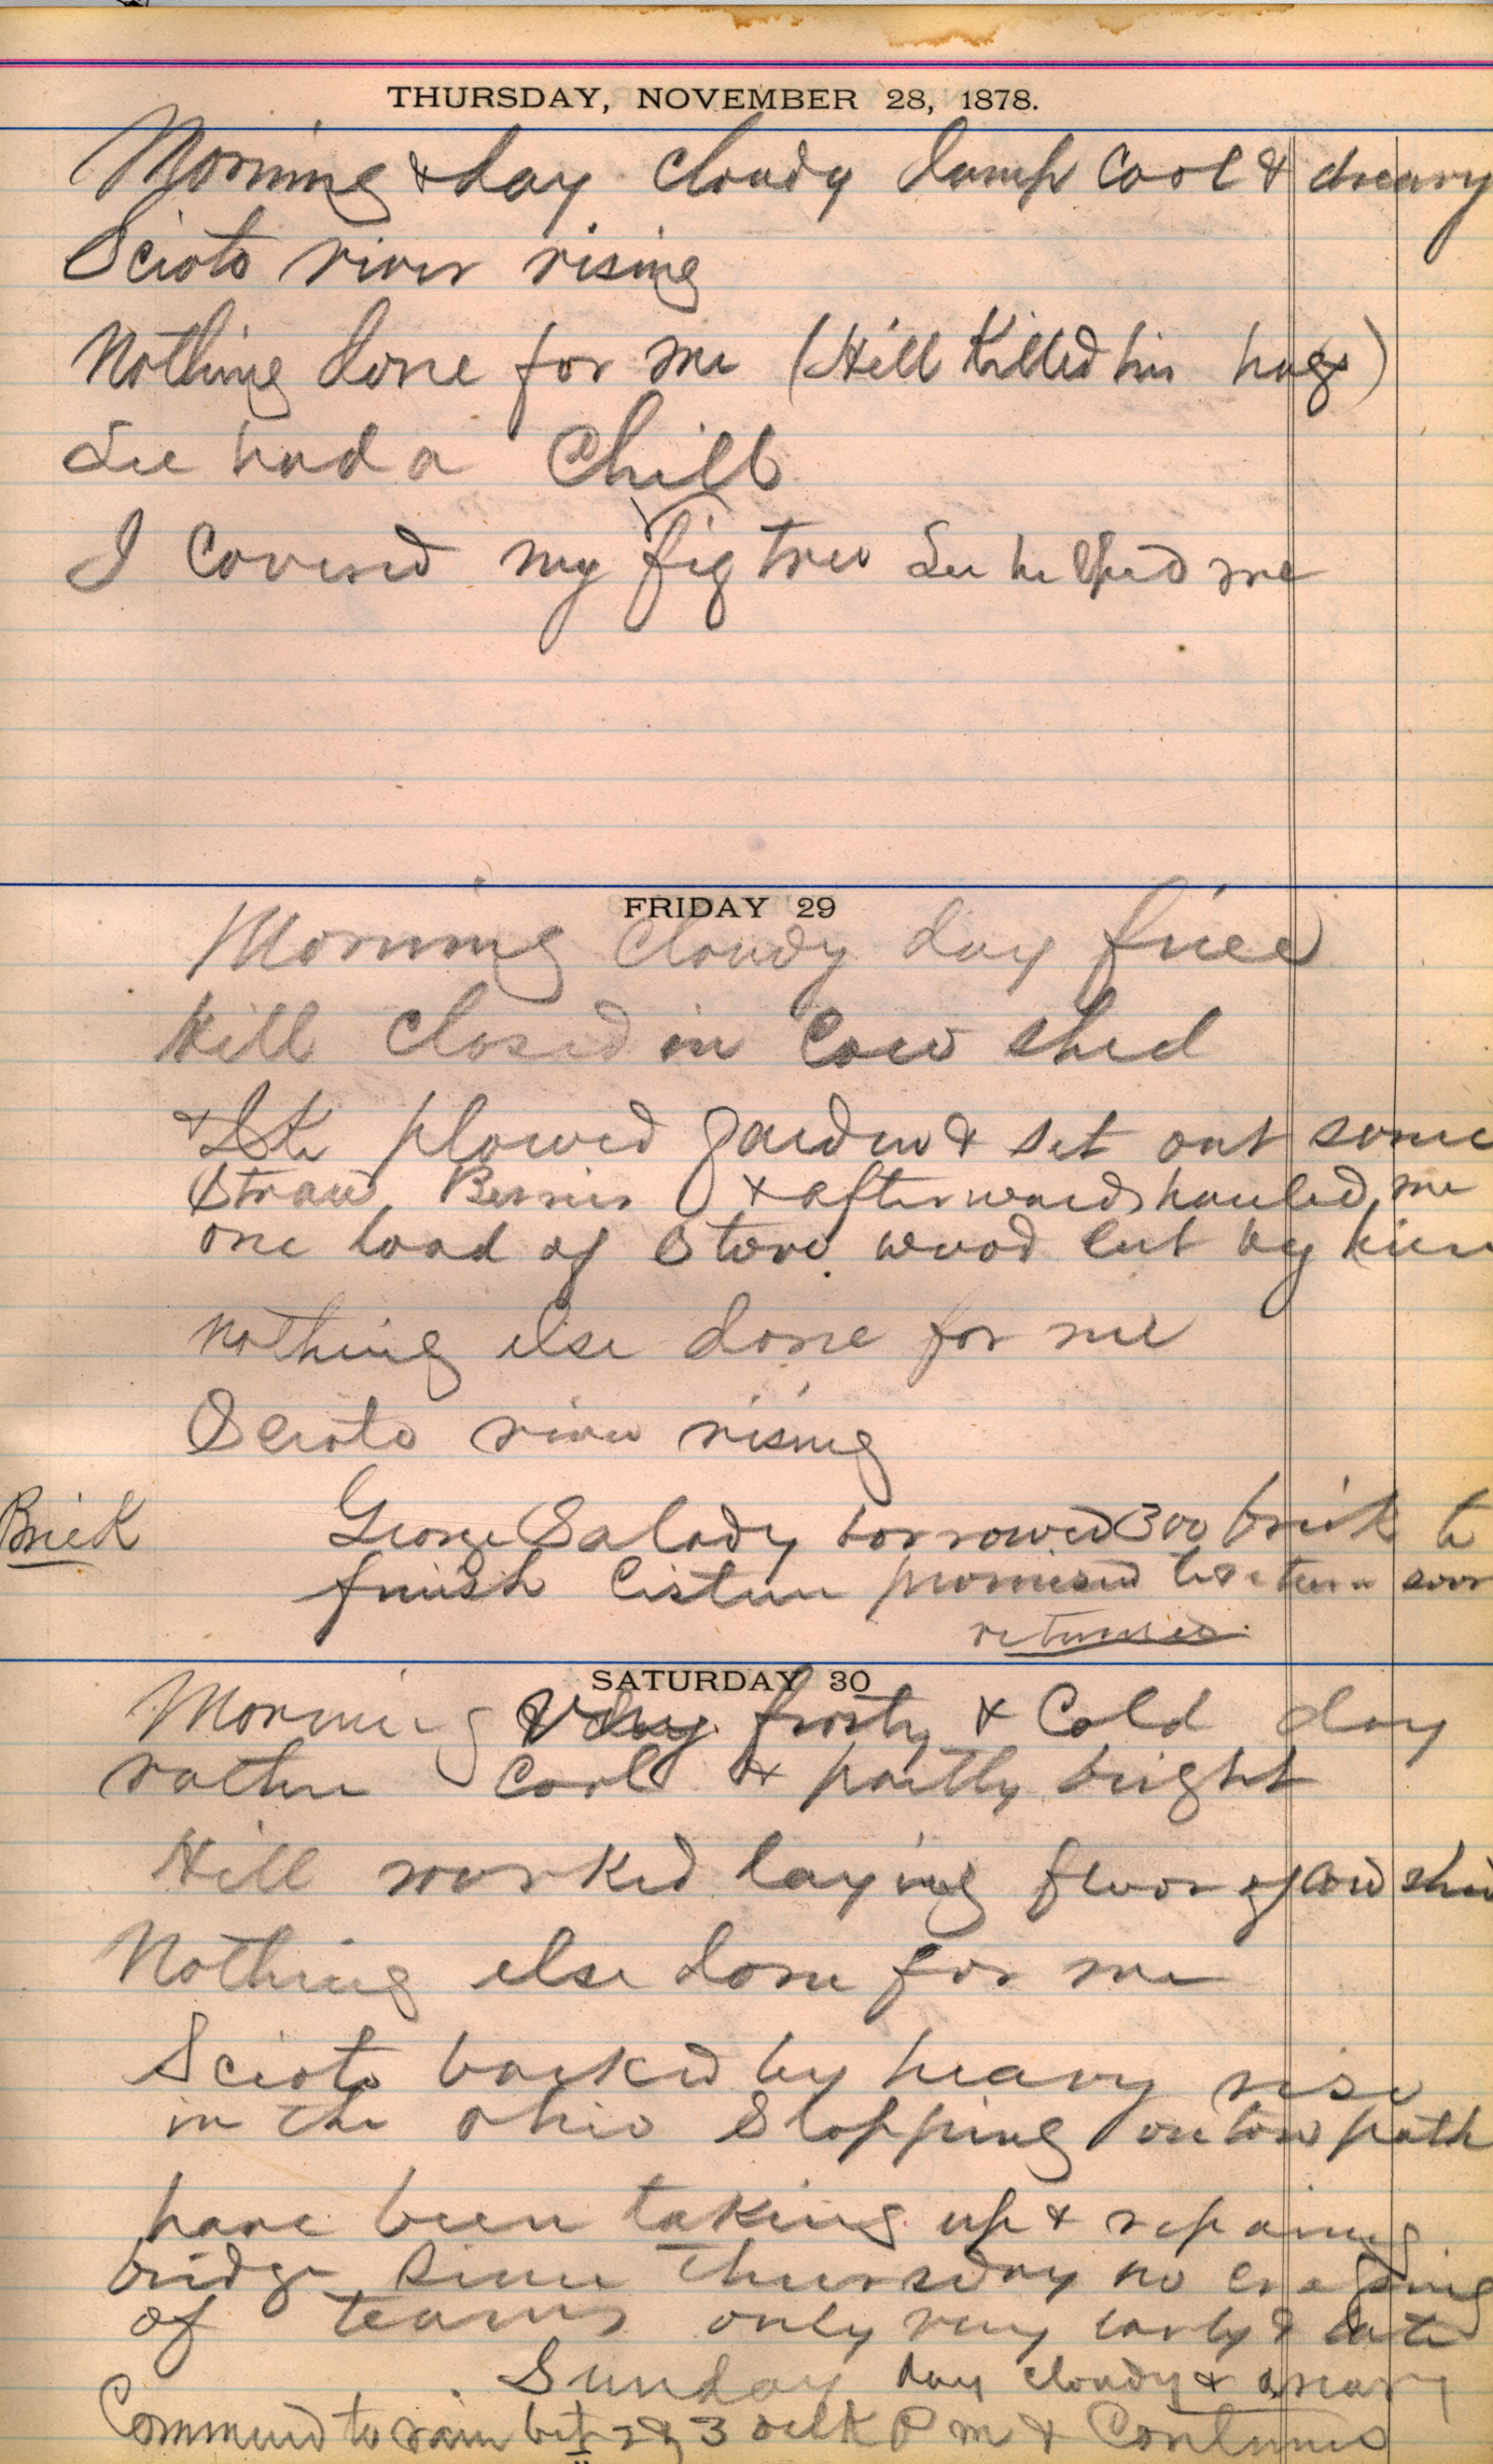 THURSDAY, NOVEMBER 28, 1878.
Morning & day cloudy damp cool & dreary
Scioto river rising
Nothing done for me (Hill Killed his hogs)
Lee had a Chill
I covered my fig trees Lee helped me
FRIDAY 29
Morning cloudy day fine
Hill closed in cow shed
& plowed garden & set out some
Straw Berries & afterwards hauled me
one load of Stove wood cut by him
nothing else done for me
Scioto river rising
Brick George Salady borrowed 300 brick to
finish Cistern promised to return soon
returned
SATURDAY 30
Morning Very frosty & Cold day
rather Cool & partly bright
Hill worked laying floor of cow shed
Nothing else done for me
Scioto backed by heavy rise
in the Ohio Slopping on tow path
have been taking up & repairing
bridge Since Thursday no crossing
of teams only very early & late
Sunday day cloudy & dreary
Commenced to rain bet 2 & 3 oclk P m & Continues